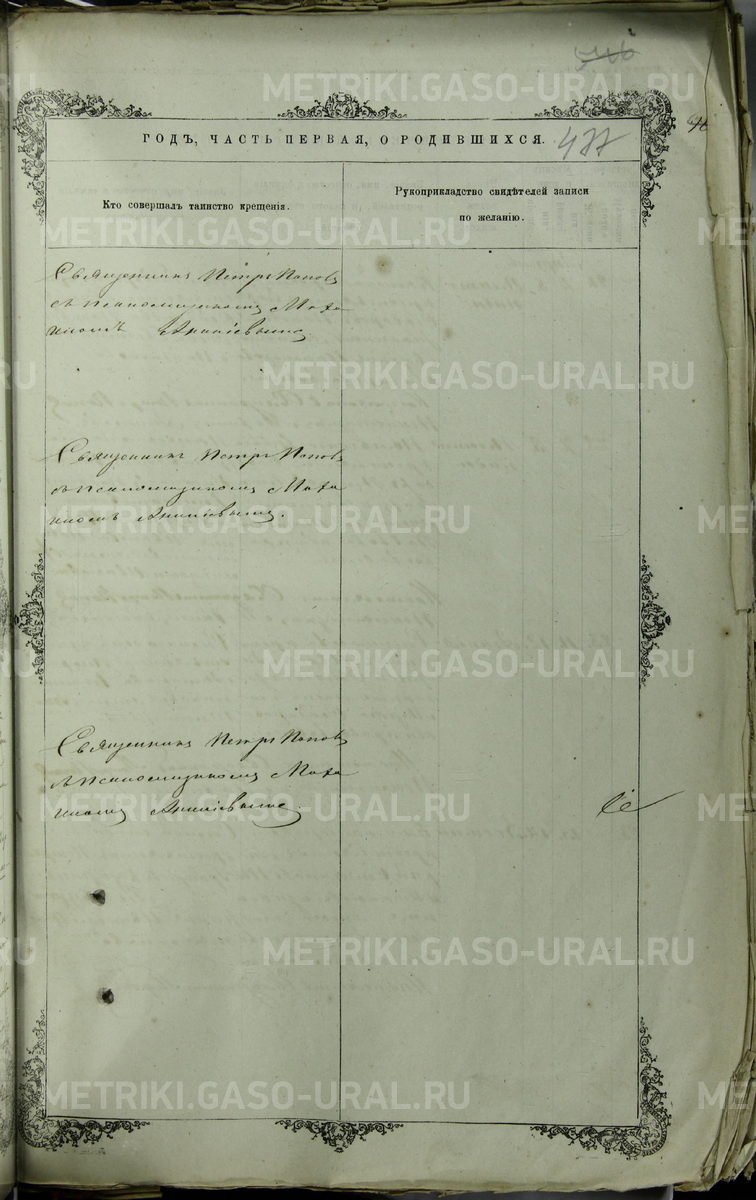 546
METRIKI.GASO-URAL.RU
ГОДЪ, ЧАСТЬ ПЕРВАЯ, О РОДИВШИХСЯ.
477
Кто совершалъ таинство крещенія.
Рукоприкладство свидѣтелей записи
по желанію.
Священникъ Петръ Поповъ
съ псаломщикомъ
Священникъ Петръ Поповъ
съ псаломщикомъ
Священникъ Петръ Поповъ
съ псаломщикомъ
METRIKI.GASO-URAL.RU
METRIKI.GASO-URAL.RU
METRIKI.GASO-URAL.RU
METRIKI.GASO-URAL.RU
METRIKI.GASO-URAL.RU
METRIKI.GASO-URAL.RU
METRIKI.GASO-URAL.RU